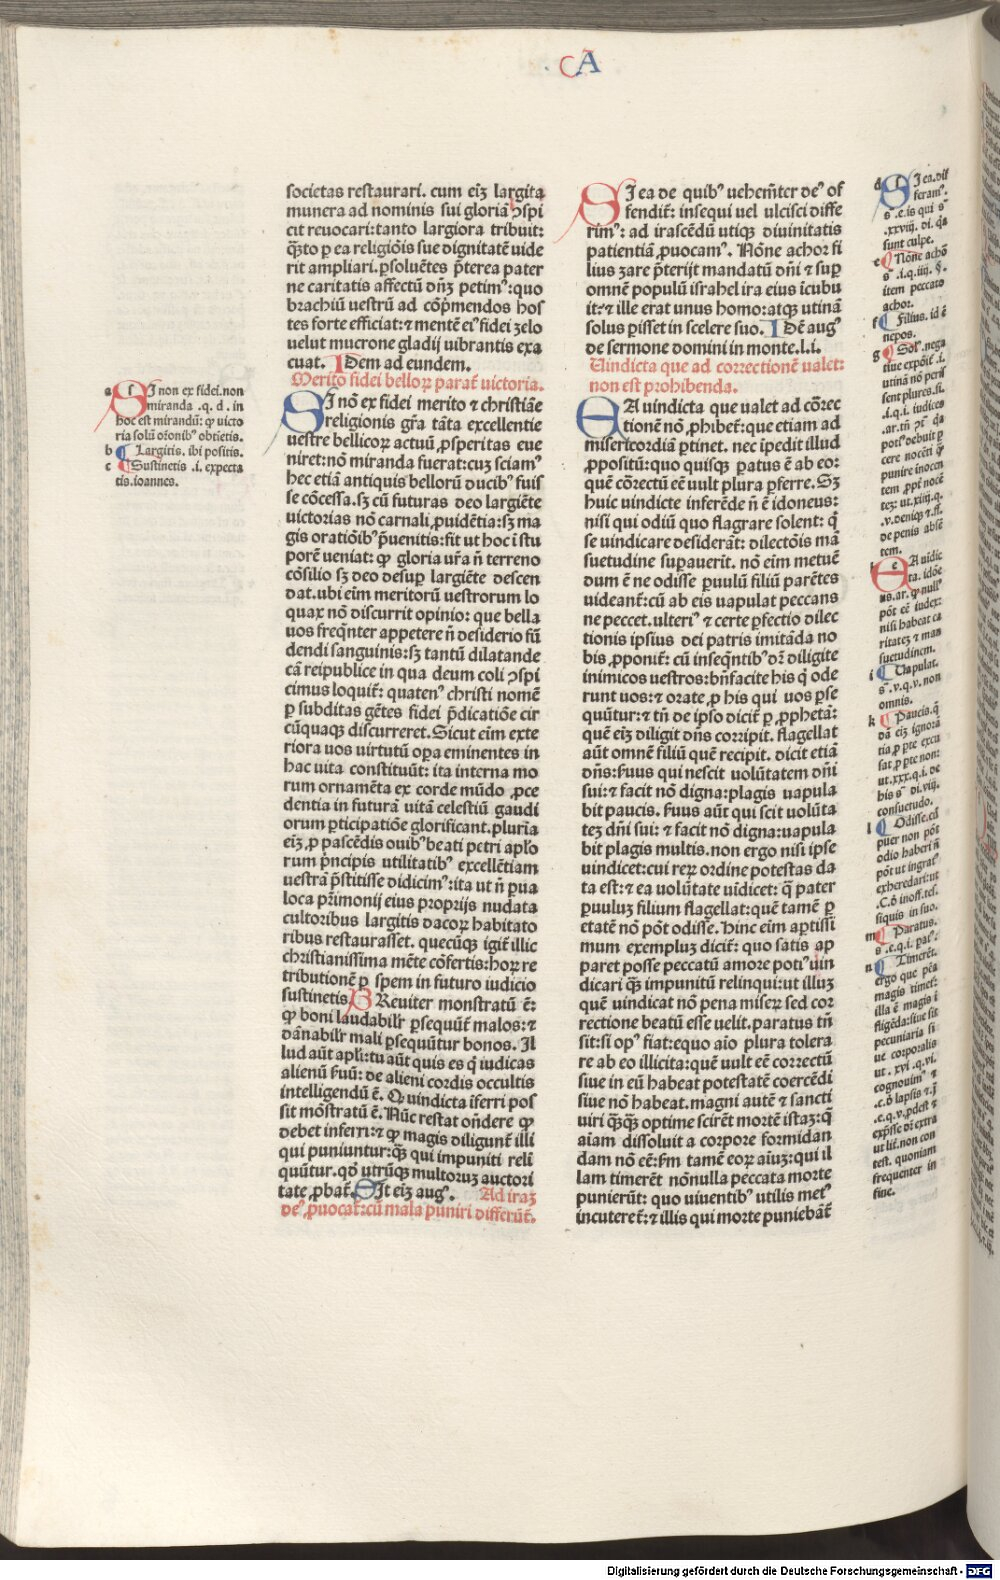 CA
societas restaurari. cum eiʒ largita
munera ad nominis sui gloriā ꝯspi
cit revocari: tanto largiora tribuit:
q̄ʒto ꝑ ea religiōis sue dignitatē uide
rit ampliari. ꝑsoluētes p̄terea pater
ne caritatis affectū dn̄ʒ petimꝰ: quo
brachiū uestrū ad cōp̄mendos hos
tes forte efficiat: ⁊ mentē eiꝰ fidei zelo
velut mucrone gladij vibrantis exa
cuat. IDem ad eundem.
Merito fidei belloꝝ parat̄ victoria.
SI nō ex fidei merito ⁊ christiāe
religionis gr̄a tāta excellentie
vestre bellicoꝝ actuū ꝓsperitas eue
niret: nō miranda fuerat: cuʒ sciamꝰ
hec etiā antiquis bellorū ducibꝰ fuis
se cōcessa. sʒ cū futuras deo largiēte
victorias nō carnali ꝓuidētia: sʒ ma
gis oratiōibꝰ p̄uenitis: fit ut hoc ī stu
porē veniat: ꝙ gloria vr̄a n̄ terreno
cōsilio sʒ deo desuꝑ largiēte descen
dat. ubi eim meritorū uestrorum lo
quax nō discurrit opinio: que bella
uos freq̄nter appetere n̄ desiderio fū
dendi sanguinis: sʒ tantū dilatande
cā reipublice in qua deum coli ꝯspi
cimus loquit̄: quatenꝰ christi nomē
ꝑ subditas gētes fidei p̄dicatiōe cir
cūquaqʒ discurreret. Sicut eim exte
riora uos virtutū oꝑa eminentes in
hac vita constituūt: ita interna mo
rum ornamēta ex corde mūdo ꝓce
dentia in futurā vitā celestiū gaudi
orum ꝑticipatiōe glorificant. plurīa
eiʒ ꝓ pascēdis ouibꝰ beati petri apl̄o
rum p̄ncipis utilitatibꝰ excellētiam
vestrā p̄stitisse didicimꝰ: ita ut n̄ ꝑua
loca pr̄imonij eius proprijs nudata
cultoribus largitis dacoꝝ habitato
ribus restaurasset. quecūqʒ igit̄ illic
christianissima mēte cōfertis: hoꝝ re
tributionē ꝑ spem in futuro iudicio
sustinetis. BReuiter monstratū ē:
ꝙ boni laudabilr̄ ꝑsequūt̄ malos: ⁊
dānabilr̄ mali ꝑsequūtur bonos. Il
lud aūt apl̄i: tu aūt quis es q̇ iudicas
alienū ẜuū: de alieni cordis occultis
intelligendū ē. Q vindicta īferri pos
sit mōstratū ē. Nūc restat on̄dere ꝙ
debet inferri: ⁊ ꝙ magis diligunt̄ illi
qui puniuntur: q̄ʒ qui impuniti reli
quūtur. qō utrūqʒ multoruʒ auctori
tate ꝓbat̄. DIt eiʒ augꝰ. Ad iraʒ
deꝰ ꝓuocat̄: cū mala puniri differūt̄.
a SI non ex fidei. non
miranda .q. d. in
hoc est mirandū: ꝙ victo
ria solū or̄onibꝰ obtietis.
b Largitis. ibi positis.
c Sustinetis .i. expecta
tis. ioannes.
SI ea de quibꝰ uehem̄ter deꝰ of
fendit̄: insequi uel ulcisci diffe
rimꝰ: ad irascēdū utiqʒ diuinitatis
patientiā ꝓuocamꝰ. Nōne achor fi
lius zare p̄terijt mandatū dn̄i ⁊ suꝑ
omnē populū israhel ira eius īcubu
it: ⁊ ille erat unus homo: atqʒ utinā
solus ꝑisset in scelere suo. IDē augꝰ
de sermone domini in monte. l. i.
Uindicta que ad correctionē valet:
non est prohibenda.
EA vindicta que valet ad cōrec
tionē nō ꝓhibet̄: que etiam ad
misericordiā ꝑtinet. nec īpedit illud
ꝓpositū: quo quisqʒ ꝑatus ē ab eo:
quē cōrectū eē vult plura ꝑferre. Sʒ
huic vindicte inferēde n̄ ē idoneus:
nisi qui odiū quo flagrare solent: q̇
se vindicare desiderāt: dilectōis mā
suetudine suꝑauerit. nō eim metuē
dum ē ne odisse ꝑuulū filiū parētes
videant̄: cū ab eis vapulat peccans
ne peccet. ulteriꝰ ⁊ certe ꝑfectio dilec
tionis ipsius dei patris imitāda no
bis ꝓponit̄: cū inseq̄ntibꝰ dr̄ diligite
inimicos vestros: bn̄facite his q̇ ode
runt vos: ⁊ orate ꝓ his qui vos ꝑse
quūtur: ⁊ tn̄ de ipso dicit̄ ꝑ ꝓphetā:
quē eiʒ diligit dn̄s corripit. flagellat
aūt omnē filiū quē recipit. dicit etiā
dn̄s: ẜuus qui nescit volūtatem dn̄i
sui: ⁊ facit nō digna: plagis vapula
bit paucis. ẜuus aūt qui scit volūta
teʒ dn̄i sui: ⁊ facit nō digna: vapula
bit plagis multis. non ergo nisi ipse
vindicet: cui reꝝ ordine potestas da
ta est: ⁊ ea volūtate vīdicet: q̄ pater
ꝑuuluʒ filium flagellat: quē tamē ꝑ
etatē nō pōt odisse. Hinc eim aptissi
mum exempluʒ dicit̄: quo satis ap
paret posse peccatū amore potiꝰ vin
dicari q̄ʒ impunitū relinqui: ut illuʒ
quē vindicat nō pena miseꝝ sed cor
rectione beatū esse velit. paratus tn̄
sit: si opꝰ fiat: equo aīo plura tolera
re ab eo illicita: quē vult eē correctū
siue in eū habeat potestatē coercēdi
siue nō habeat. magni autē ⁊ sancti
viri q̄ʒqʒ optime scirēt mortē istaʒ: q̄
aīam dissoluit a corpore formidan
dam nō eē: ẜm tamē eoꝝ aīuʒ: qui il
lam timerēt nōnulla peccata morte
punierūt: quo viventibꝰ utilis metꝰ
incuteret̄: ⁊ illis qui morte puniebāt̄
d SI ea. dif
feramꝰ.
.e. is qui
.xxviij. di. q̇a
sunt culpe.
e Nōne achō
.i. q. iiij. §.
item peccato
achor.
f Filius. id ē
nepos.
g Solꝰ. nega
tiue
utinā nō
sent plures.
.i. q. i. iudices
pōt
cere nocēti
punire inocen
tem
teʒ: ut. xiiij. q.
.v. deniqʒ
de penis absē
tem.
h EA vīdic
ta. idōe
us. ar. ꝙ nullꝰ
pōt eē iudex:
nisi habeat ca
ritateʒ ⁊ man
suetudinem.
i Vapulat.
.v. q. v. non
omnis.
k Paucis. q̇
dā eiʒ ignorā
tia ꝓ ꝑte excu
sat ꝓ ꝑte non:
ut. xxx. q. i. de
his di. viij.
consuetudo.
l Odisse.
puer non pōt
odio haberi
pōt ut ingratꝰ
exheredari: ut
.C. ō inoff. tes.
siquis in suo.
m Paratus.
.e. q. i.
n Timerēt.
ergo que pēa
magis timet̄:
illa ē magis ī
fligēda: siue sit
pecuniaria si
ue corporalis
ut. xvi. q. vi.
cognouimꝰ ⁊
.e. ō lapsis
.e. q. v. ꝓdest ⁊
extra
ut lit̄. non con
test. quoniam
frequenter in
fine.
Digitalisierung gefördert durch die Deutsche Forschungsgemeinschaft - DFG